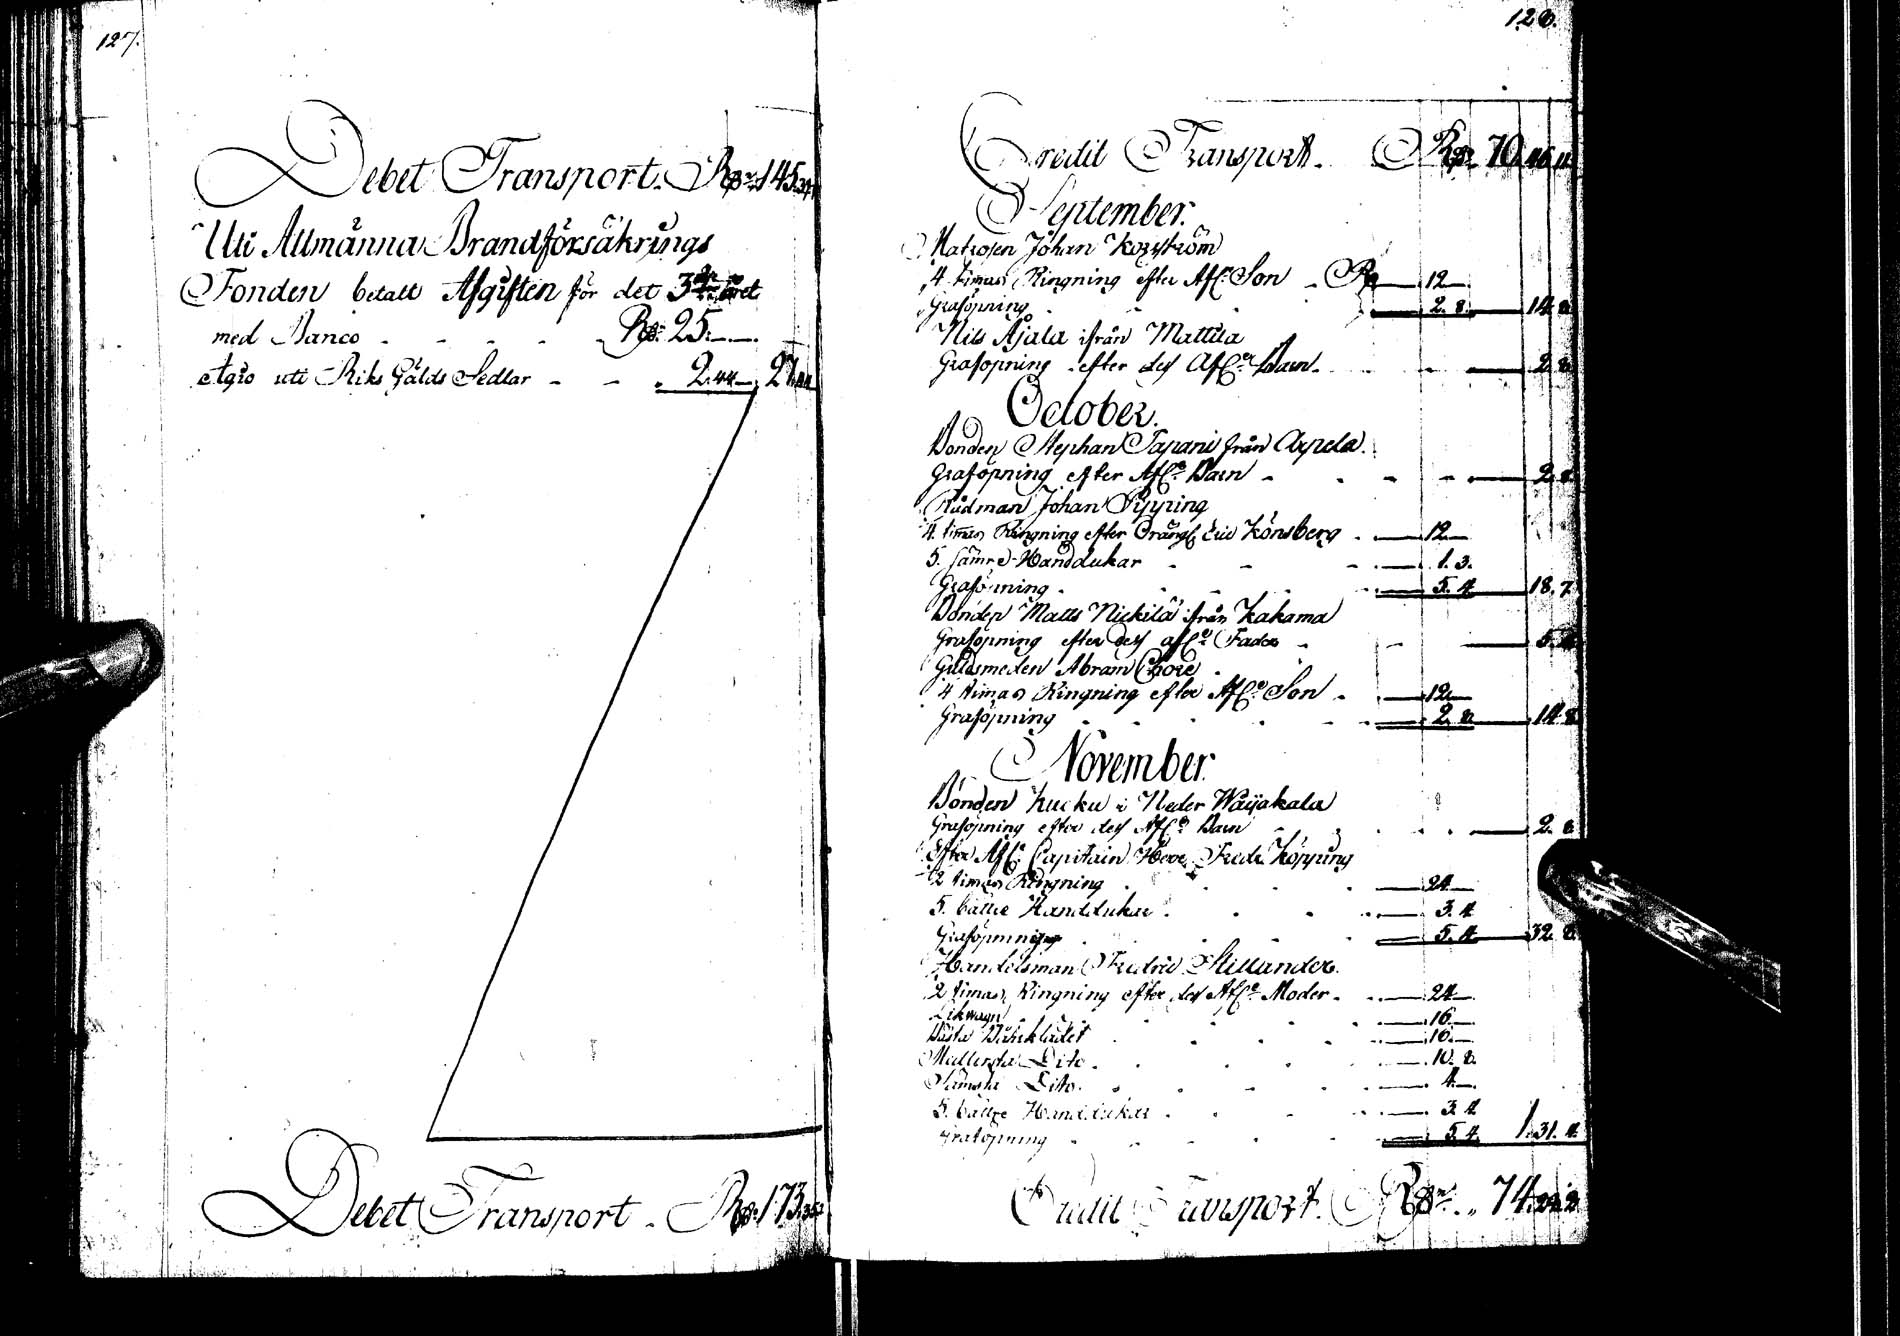 127.
Debet Transport. Rdr. 145.
Uti Allmänna Brandförsäkrings
Fonden betalt Afgiften för det 3 året
med Banco - - - - Rdr 25.--
Agio uti Riks Gälds Sedlar - - " 2.44- 27.44
Debet Transport - Rdr. 173.
128.
Credit Transport. Rdr 70.46.11
September.
Matrosen Johan Korström
4 timas Ringning efter Afl. Son - Rdr 12
Graföpning 2. 8. 14. 8
Nils Äjala ifrån Mattila
Graföpning efter dess Afl. Barn - 2. 8
October.
Bonden Stephan Tapani från Arpela.
Graföpning efter Afl. Barn - - - 2. 8
Rådman Johan Pipping
4 timas Ringning efter Eric Könsberg - 12
5. sämre Handdukar - - - 1. 3.
Graföpning - 5. 4 18. 7
Bonden Matts Nickilä ifrån Kakama
Graföpning efter dess afl. Fader - 5.
Guldsmeden Abram Chore
4 timas Ringning efter Afl. Son - 12
Graföpning - 2. 8 14. 8
November.
Bonden Kucku i Neder Wojakala
Graföpning efter dess Afl. Barn 2. 8
Efter Afl. Capitain Herr Fredr. Köpping
2 timas Ringning 24
5. bättre Handdukar 3. 4
Graföpning 5. 4 32. 8
Handelsman Fredric Stillander.
2 timas Ringning efter dess Afl. Moder - 24
Likwagn 16
Bästa Bårklädet 16
Medlersta Dito 10. 8
Sämsta Dito 4
5. bättre Handdukar 3. 4
Graföpning 5. 4 1. 31. 4
Credit Transport. Rdr. 74.